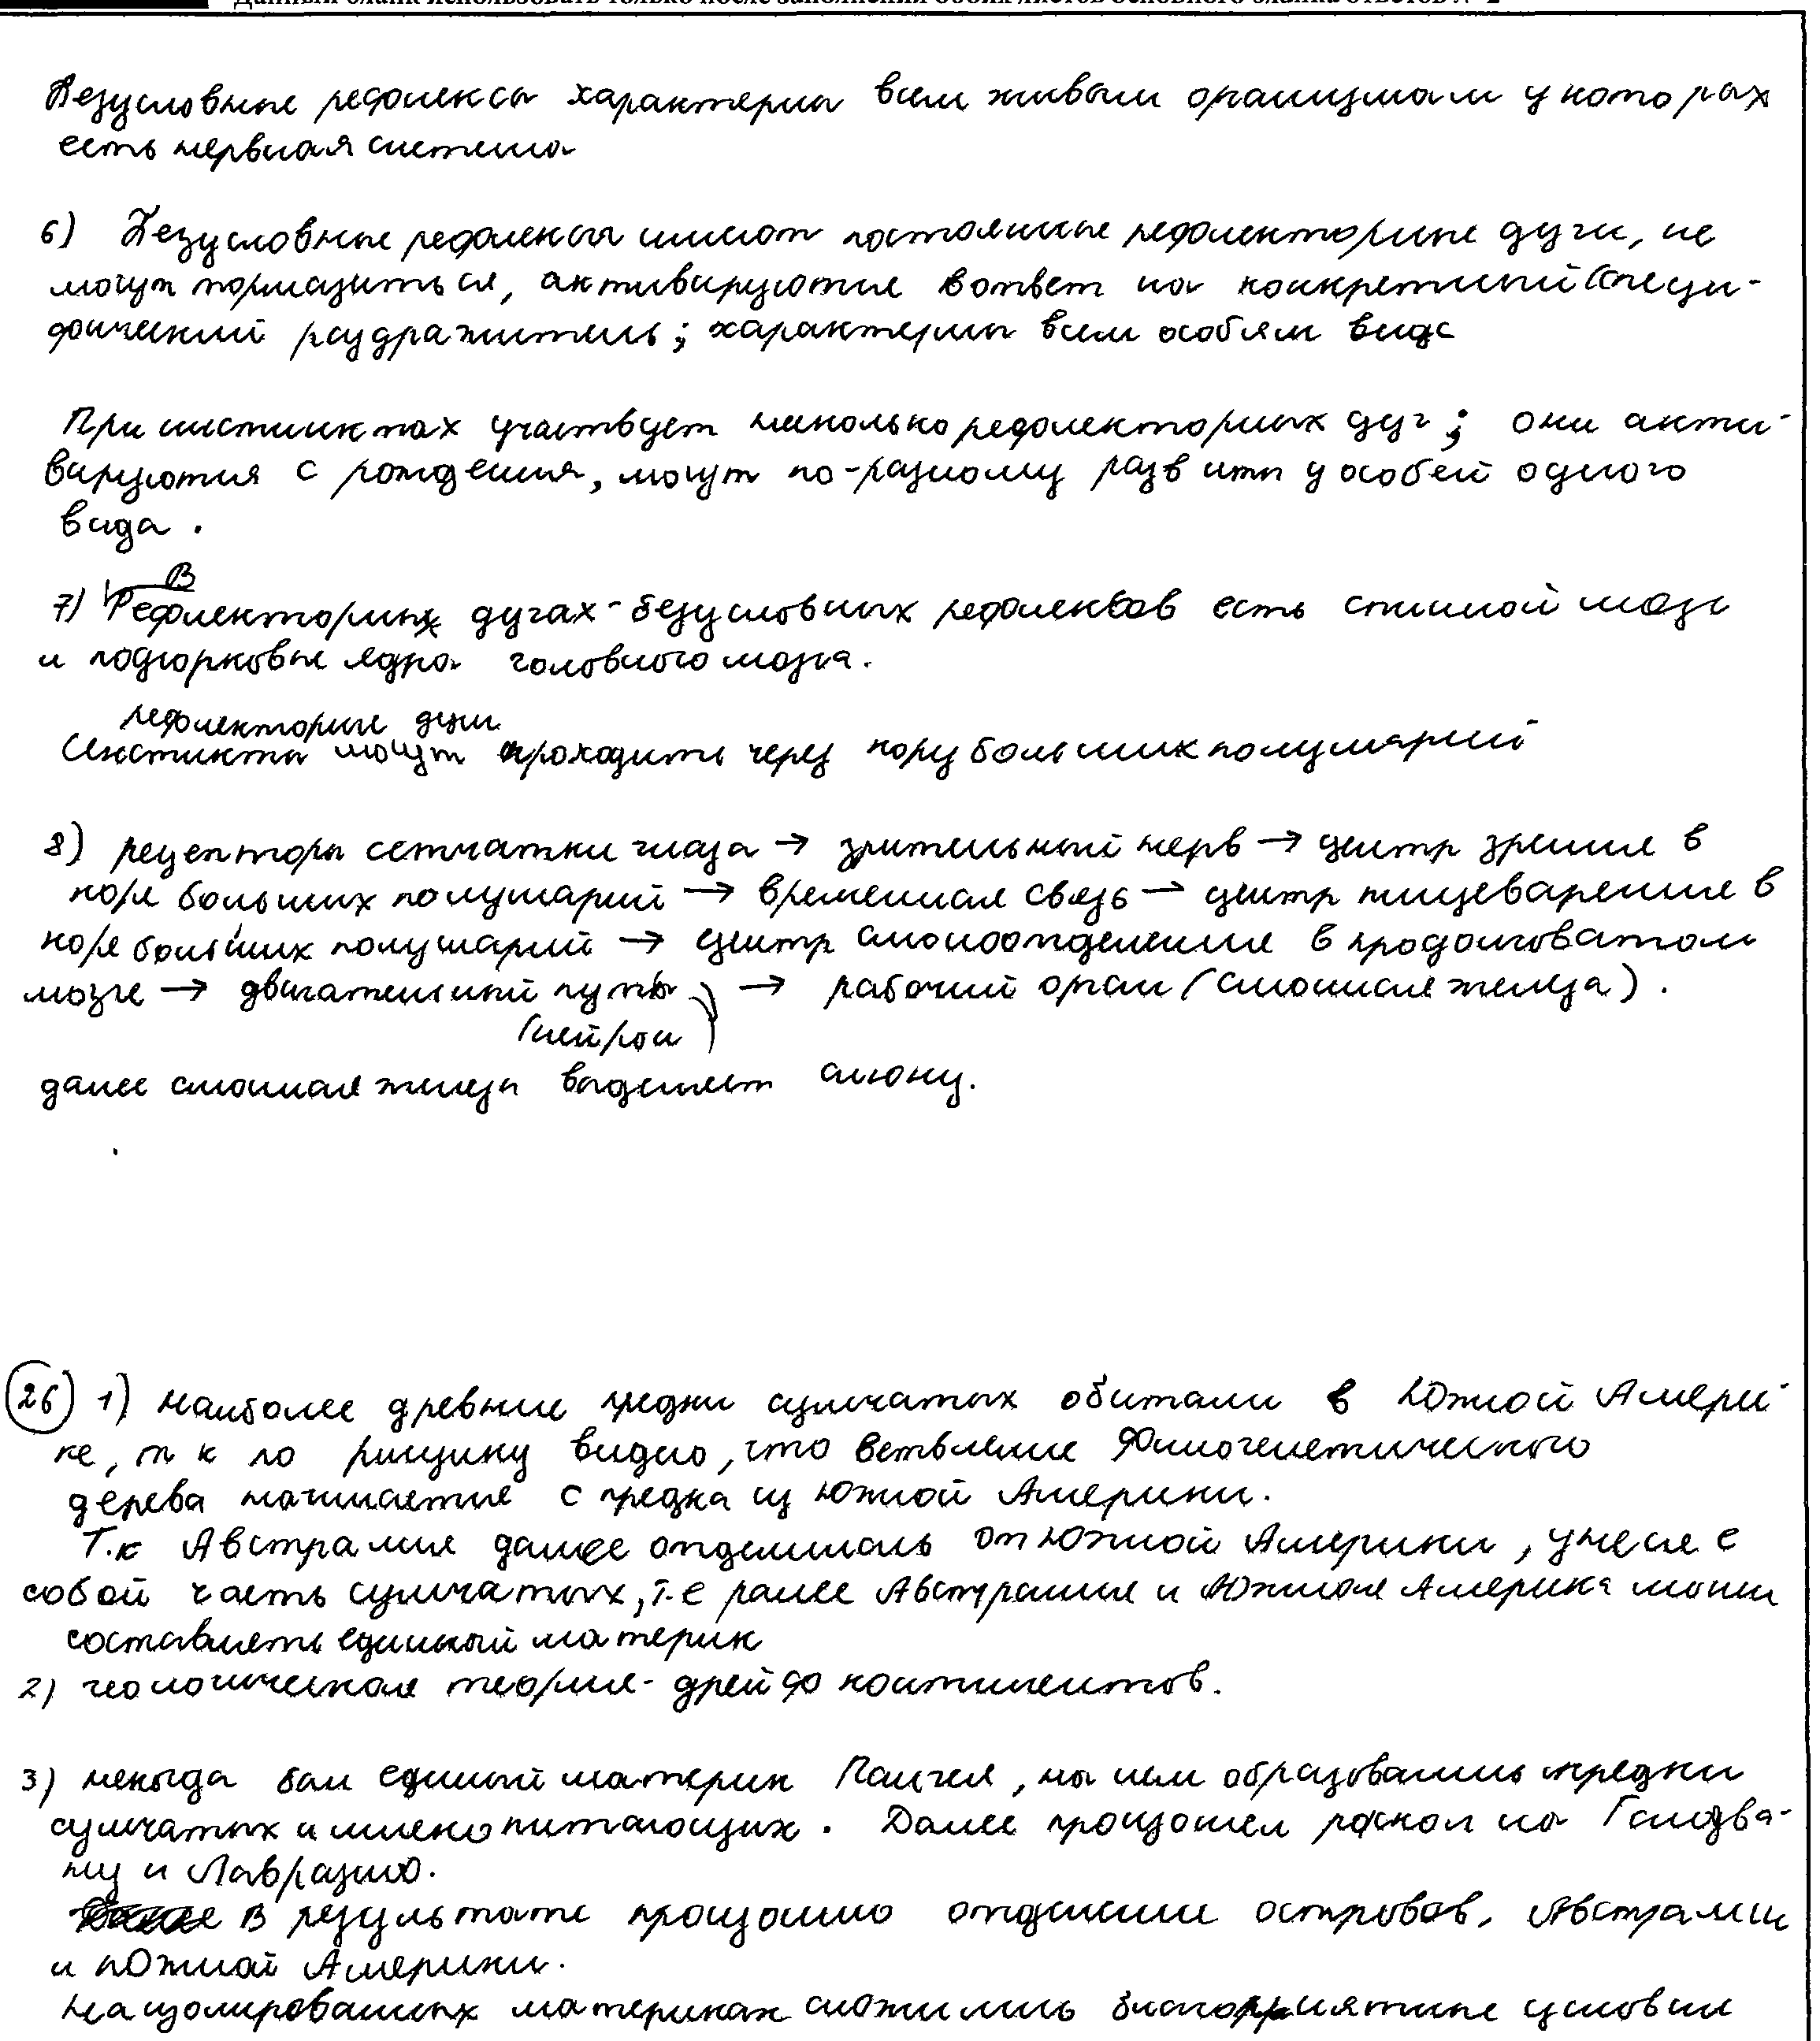 Данный бланк использовать только после заполнения обоих листов основного бланка ответов № 2
Безусловные рефлексы характерны всем живым организмам у которых
есть нервная система
6) Безусловные рефлексы имеют постоянные рефлекторные дуги, не
могут тормозиться, активируются в ответ на конкретный (специ-
фический раздражитель; характерны всем особям вида
При инстинктах участвует несколько рефлекторных дуг; они акти-
вируются с рождения, могут по-разному развиты у особей одного
вида.
7) В Рефлекторных дугах безусловных рефлексов есть спинной мозг
и подкорковые ядра головного мозга.
рефлекторные дуги
Инстинкты могут проходить через кору больших полушарий
8) рецепторы сетчатки глаза → зрительный нерв → центр зрения в
коре больших полушарий → временная связь → центр пищеварения в
коре больших полушарий → центр слюноотделения в продолговатом
мозге → двигательный путь → рабочий орган (слюнная железа).
(нейрон)
далее слюнная железа выделяет слюну.
26 1) наиболее древние предки сумчатых обитали в Южной Амери-
ке, т к по рисунку видно, что ветвление Филогенетического
дерева начинается с предка из Южной Америки.
Т.к Австралия далее отделилась от Южной Америки, унеся с
собой часть сумчатых, т.е ранее Австралия и Южная Америка могли
составлять единый материк
2) геологическая теория - дрейф континентов.
3) некогда был единый материк Пангея, на нем образовались предки
сумчатых и млекопитающих. Далее произошел раскол на Гондва-
ну и Лавразию.
В результате произошло отделение островов, Австралии
и Южной Америки.
На изолированных материках сложились благоприятные условия